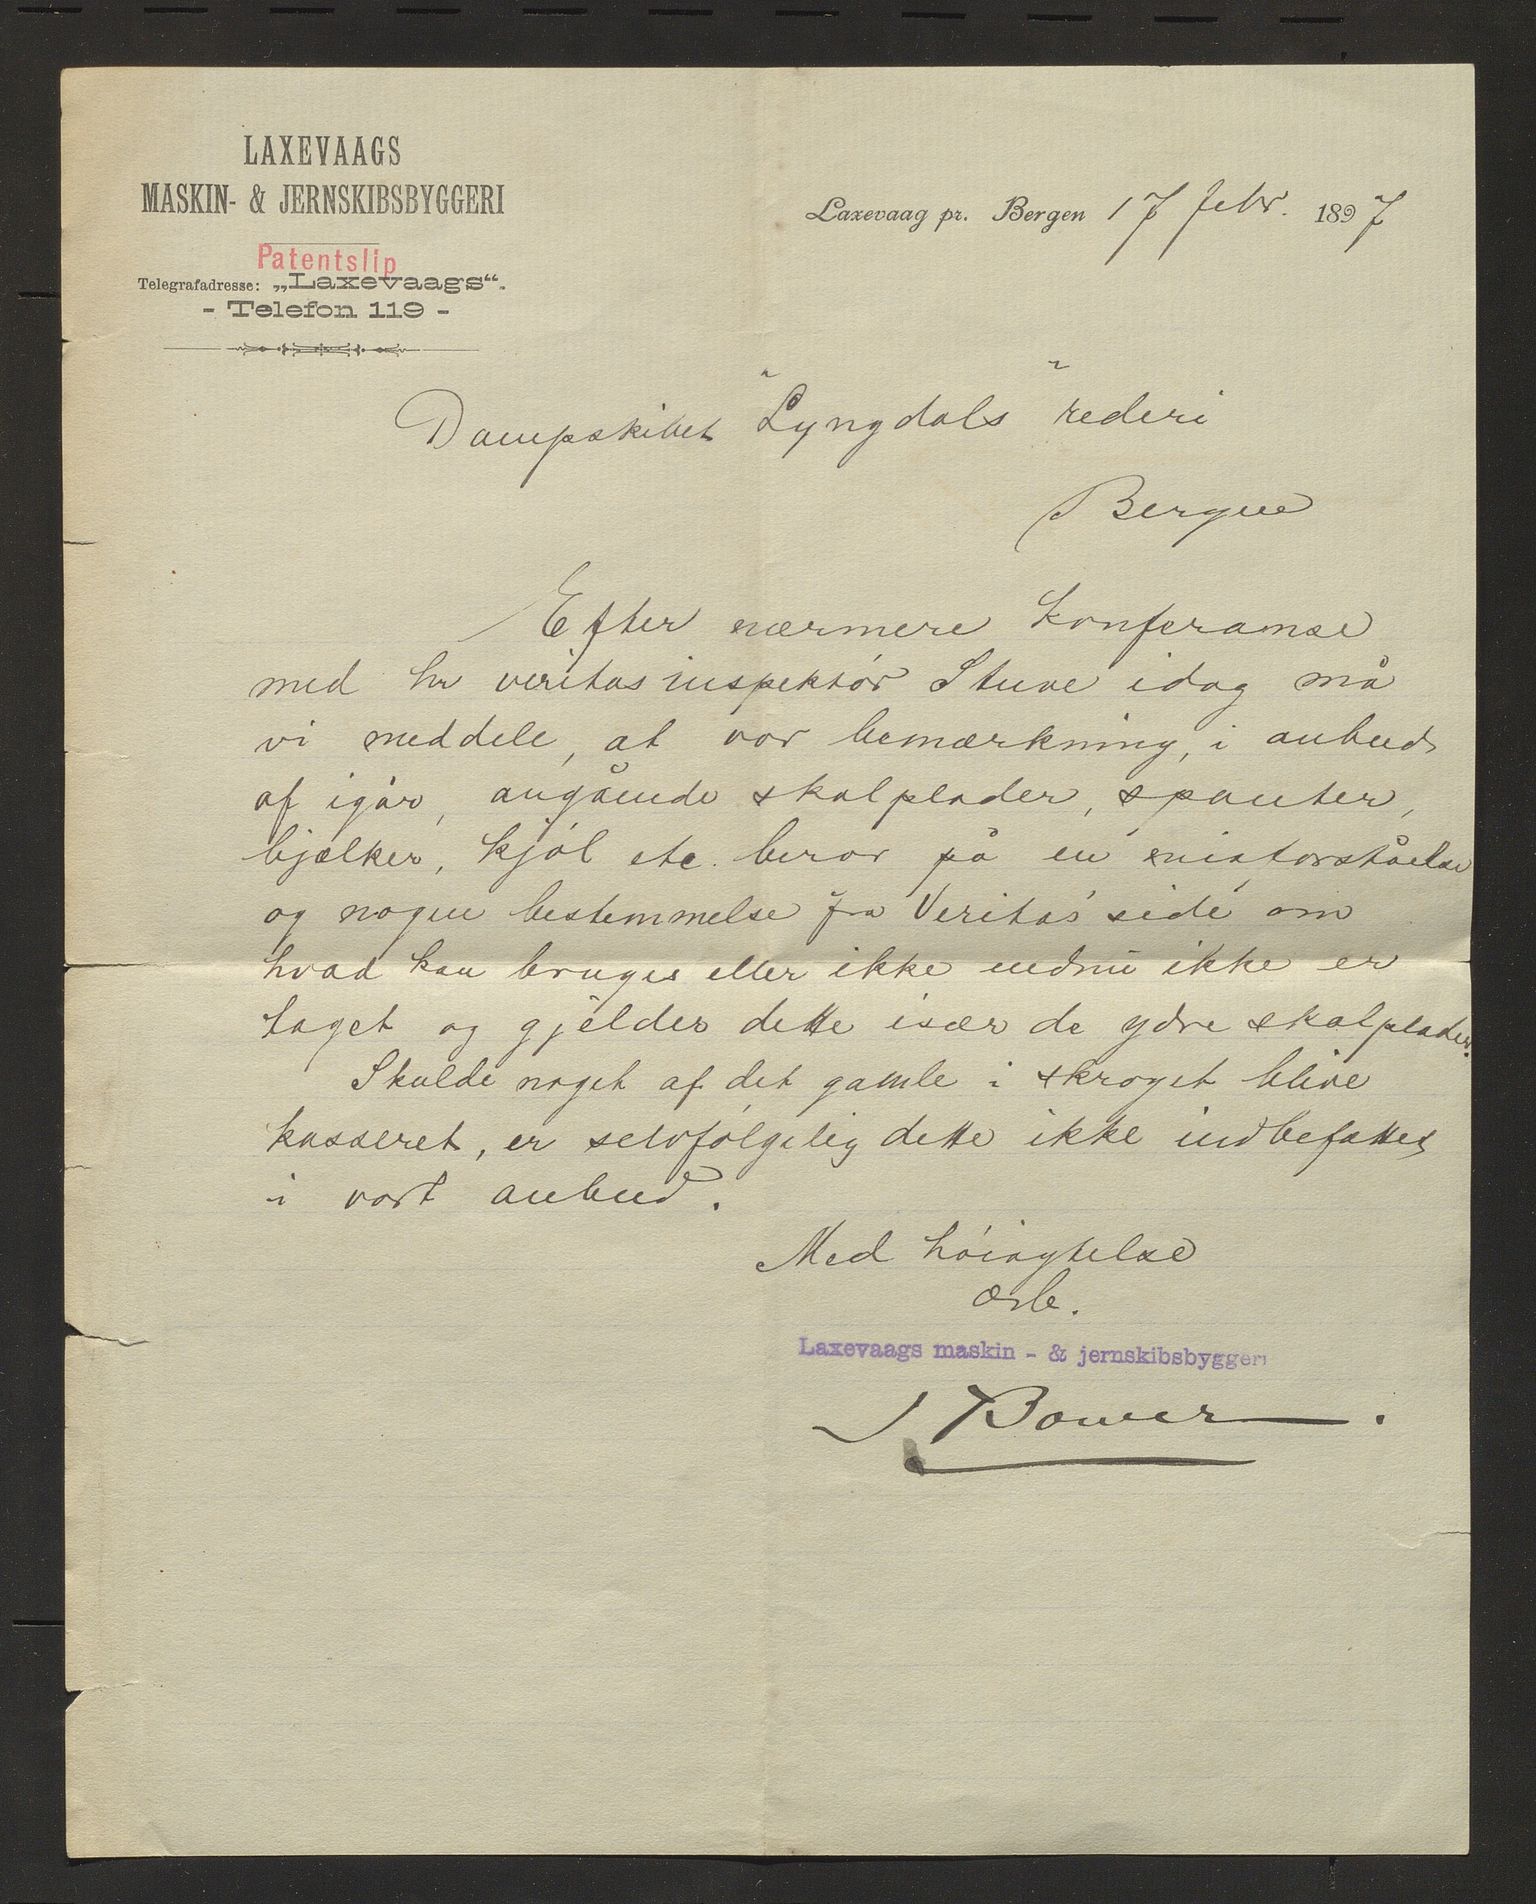 LAXEVAAGS
MASKIN- & JERNSKIBSBYGGERI
Patentslip
Telegrafadresse: „Laxevaags“.
- Telefon 119 -
Laxevaag pr. Bergen 17 febr. 1897
Dampskibet "Lyngdals" rederi
Bergen
Efter nærmere konferanse
med hr veritasinspektór Stuve idag må
vi meddele, at vor bemærkning, i anbud
af igår, angående skalplader, spanter,
bjælker, kjól etc. beror på en misforståelse
og nogen bestemmelse fra Veritas' side om
hvad kan bruges eller ikke endnu ikke er
taget og gjelder dette især de ydre skalplader.
Skulde noget af det gamle i skroget blive
kasseret, er selvfólgelig dette ikke indbefattet
i vort anbud.
Med hóiagtelse
ærb.
Laxevaags maskin - & jernskibsbyggeri
J Bower.